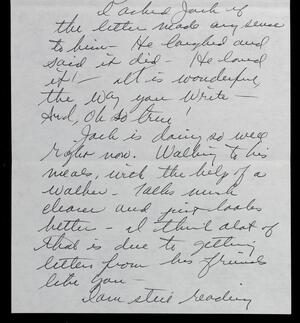 I asked Jack if
the letter made any sense
to him - He laughed and
said it did - He loved
it! - it is wonderful
the way you write -
And, Oh so true!
Jack is doing so well
right now. Walking to his
meals, with the help of a
walker - Talks much
clearer and just looks
better - I think alot of
that is due to getting
letters from his friends
like you -
I am still reading